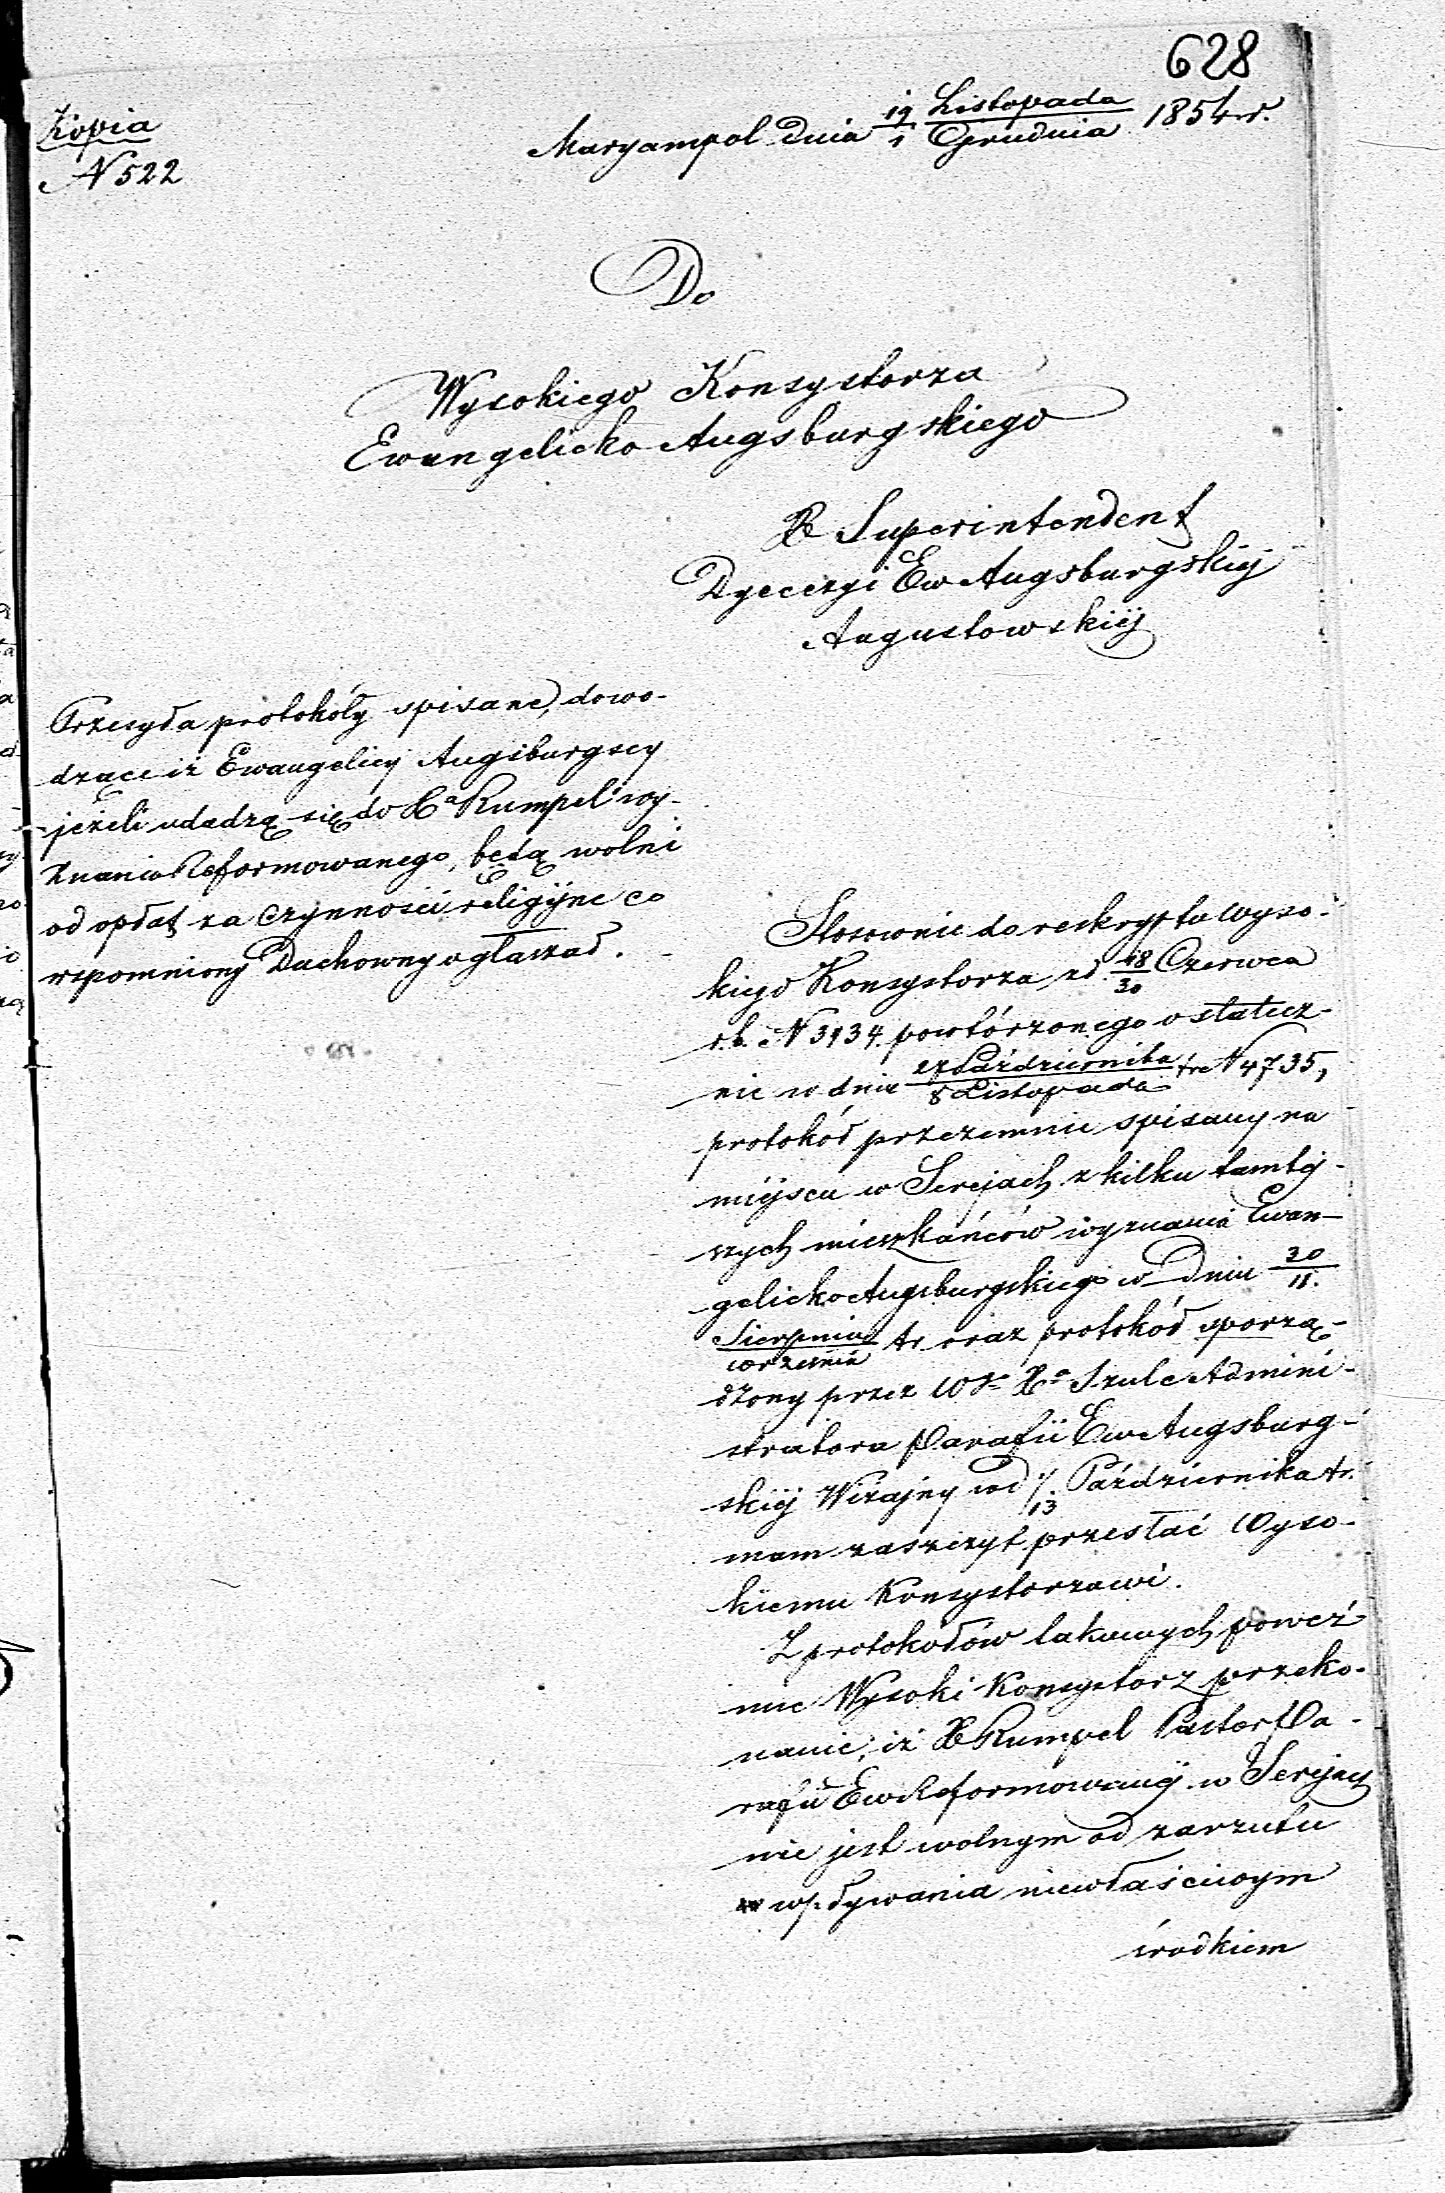 628
Kopia
N 522
Maryampol dnia 19/1 Listopada/Grudnia 1854 r.
Do
Wysokiego Konsystorza
Ewangelicko Augsburgskiego
X Superintendent
Dyecezyi Ew Augsburgskiej
Augustowskiej
Przesyła protokóły spisane, dowo-
dzące iż Ewangelicy Augsburgscy
jeżeli udadzą się do Xa Rumpel wy-
znania Reformowanego, będą wolni
od opłat za czynności religijne co
wspomniony Duchowny ogłaszał.
Stosownie do reskryptu Wyso-
kiego Konsystorza z d. 18/30 Czerwca
r.b. N 3134 powtórzonego ostatecz-
nie w dniu 27 Października/8 Listopada tr. N 4735,
protokół przezemnie spisany na
miejscu w Serejach z kilku tamtej-
szych mieszkańców wyznania Ewan-
gelicko Augsburgskiego w Dniu 30/11.
Sierpnia/Września tr oraz protokół sporzą-
dzony przez Xa Szulc Admini-
stratora Parafii Ew Augsburg-
skiej Wiżajny od 1/13 Października tr.
mam zaszczyt przesłać Wyso-
kiemu Konsystorzowi.
Z protokołów takowych poweź-
mie Wysoki Konsystorz przeko-
nanie, iż X Rumpel Pastor Pa-
rafii Ew Reformowanej w Serejach
nie jest wolnym od zarzutu
wpływania niewłaściwym
środkiem